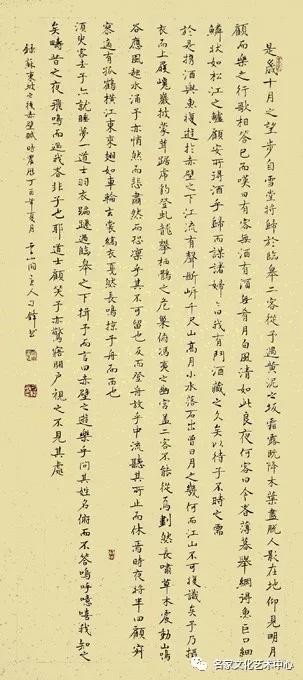 是歲十月之望步自雪堂將歸於臨皋二客從予過黃泥之坂霜露既降木葉盡脫人影在地仰見明月
顧而樂之行歌相答已而嘆曰有客無酒有酒無肴月白風清如此良夜何客曰今者薄暮舉網得魚巨口細
鱗狀如松江之鱸顧安所得酒乎歸而謀諸婦婦曰我有斗酒藏之久矣以待子不時之需
於是攜酒與魚復遊於赤壁之下江流有聲斷岸千尺山高月小水落石出曾日月之幾何而江山不可復識矣予乃攝
衣而上履巉巖披蒙茸踞虎豹登虬龍攀栖鶻之危巢俯馮夷之幽宮蓋二客不能從焉劃然長嘯草木震動山鳴
谷應風起水涌予亦悄然而悲肅然而恐凜乎其不可留也反而登舟放乎中流聽其所止而休焉時夜將半四顧寂
寥適有孤鶴橫江東來翅如車輪玄裳縞衣戛然長鳴掠予舟而西也
須臾客去予亦就睡夢一道士羽衣蹁躚過臨皋之下揖予而言曰赤壁之遊樂乎問其姓名俯而不答嗚呼噫嘻我知之
矣疇昔之夜飛鳴而過我者非子也耶道士顧笑予亦驚寤開戶視之不見其處
錄蘇東坡之後赤壁賦時農曆丁酉年夏月雲間主人刁鋒書
名家文化艺术中心